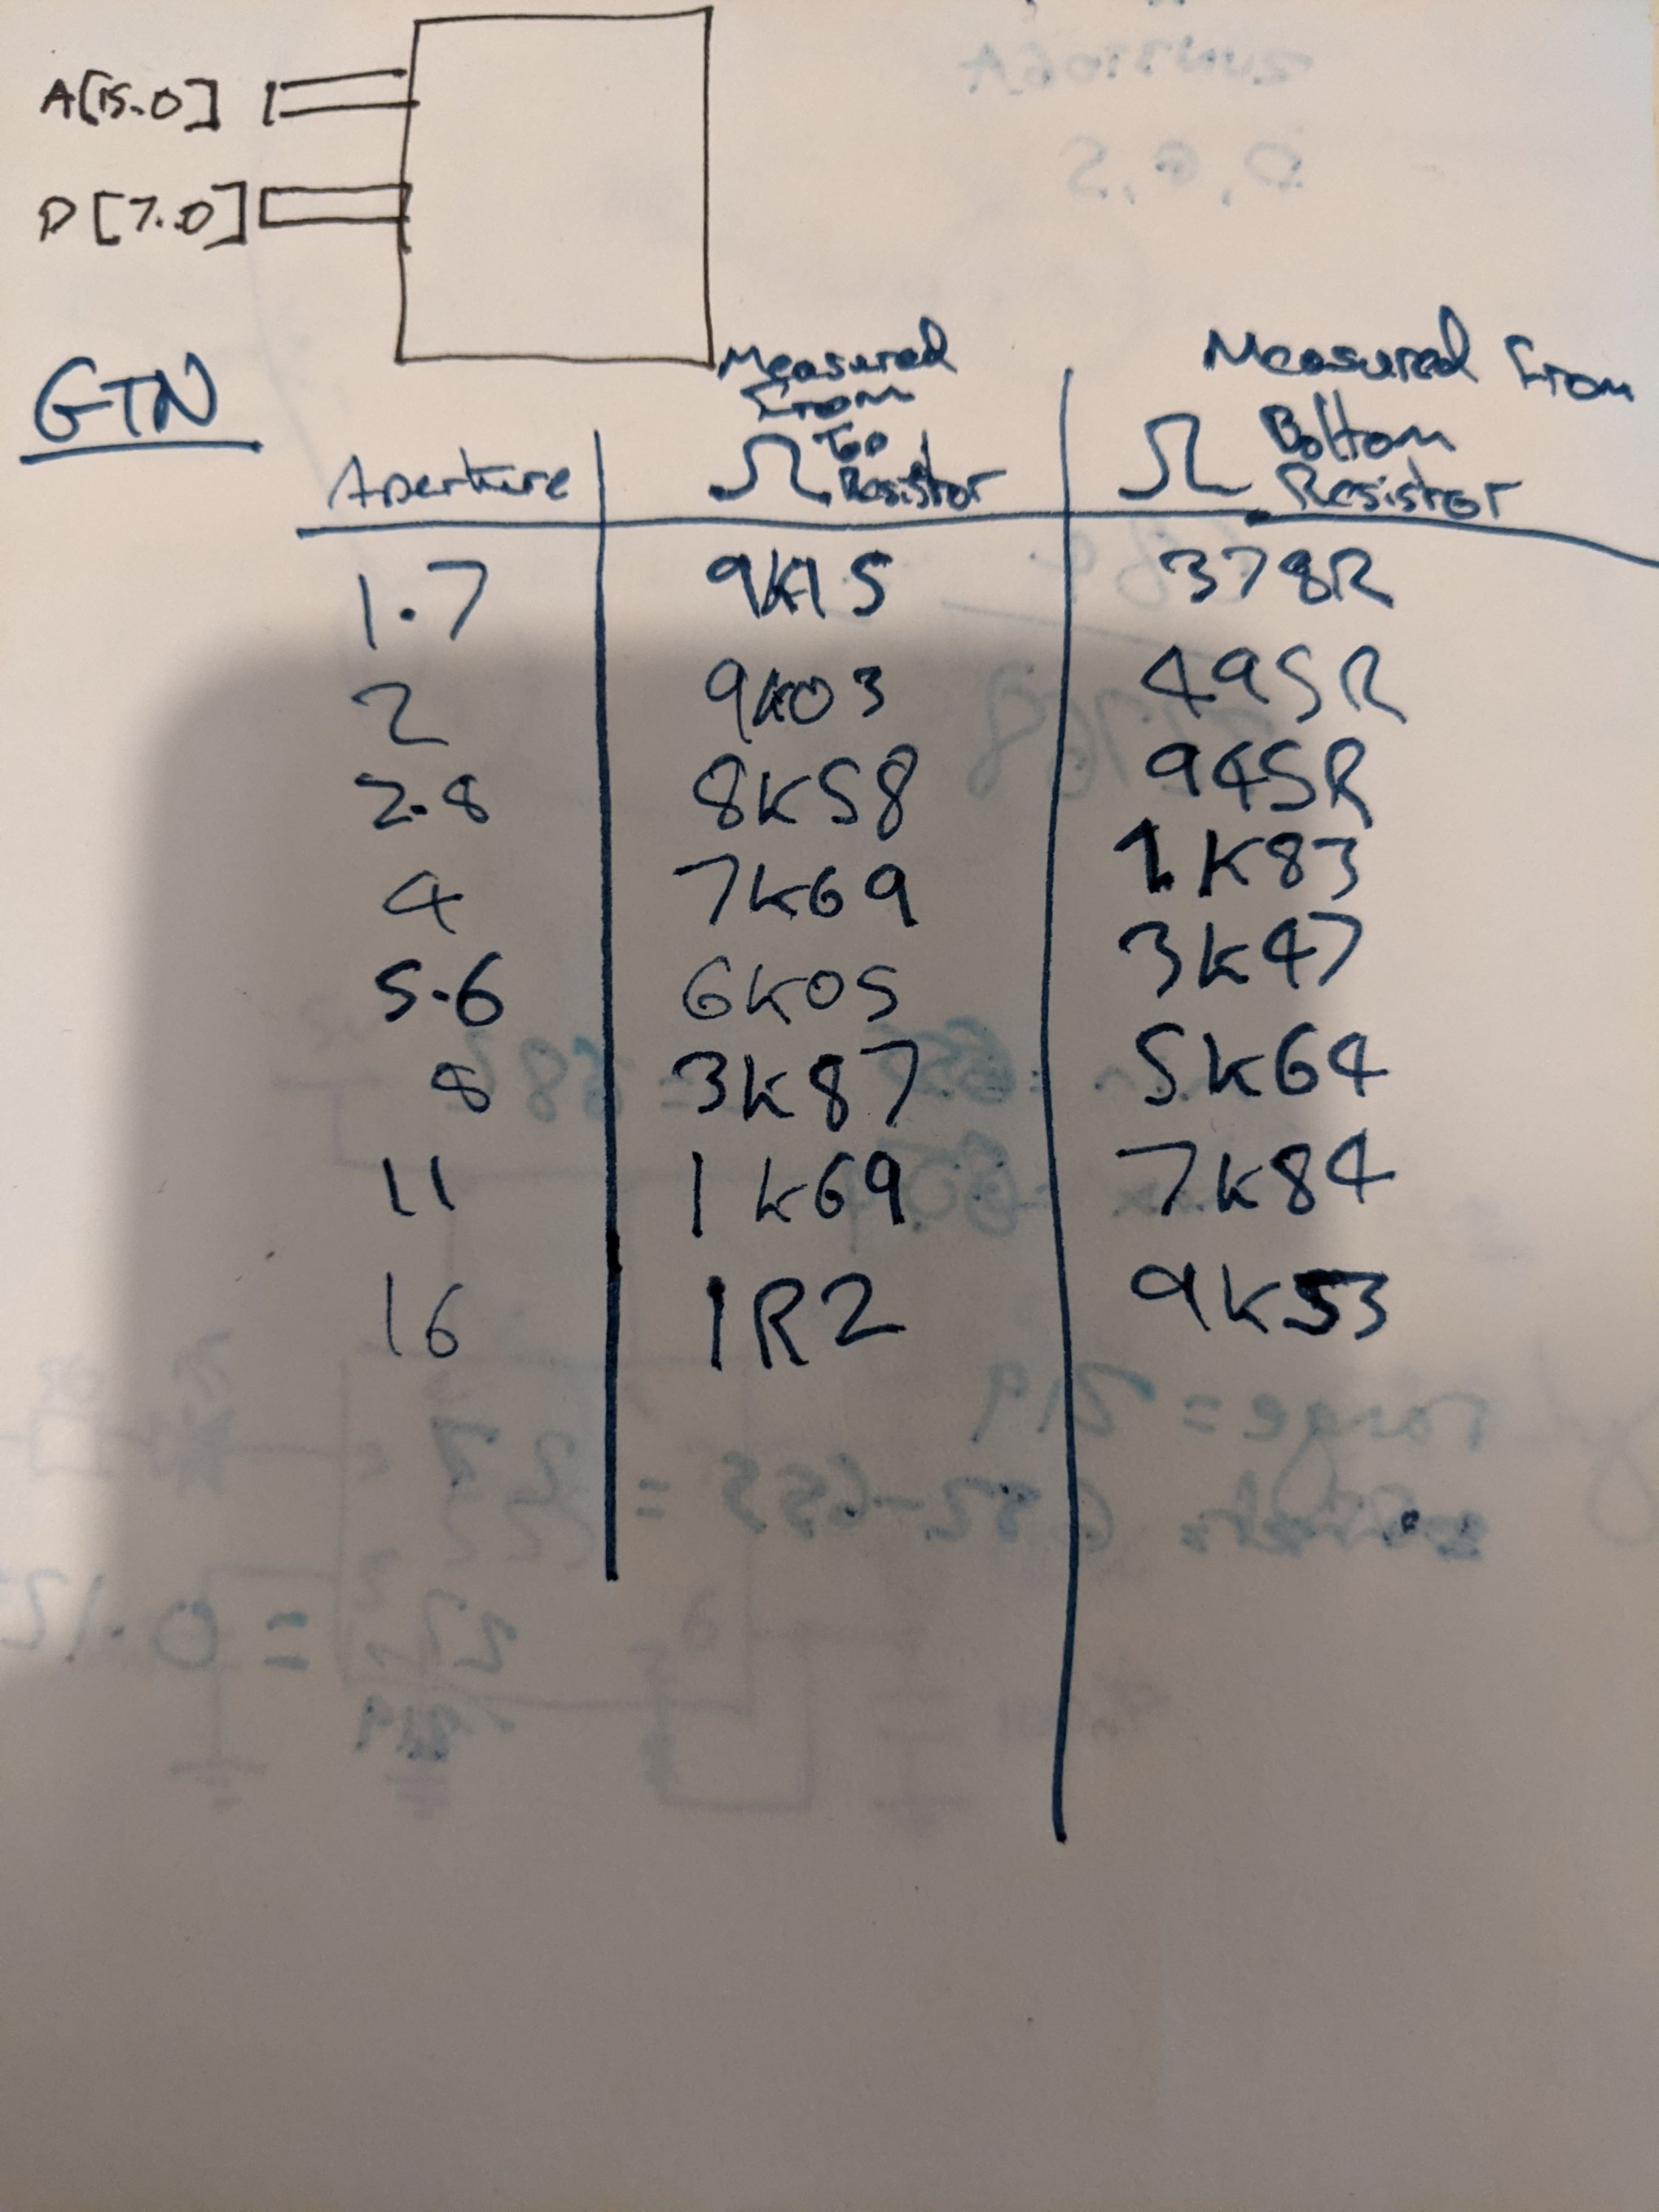 A[15..0]
D[7..0]
GTN
Aperture | Measured From Ω Top Resistor | Measured From Ω Bottom Resistor
1.7 9K15 378R
2 9K03 495R
2.8 8K58 945R
4 7K69 1K83
5.6 6K05 3K47
8 3K87 5K64
11 1K69 7K84
16 1R2 9K53